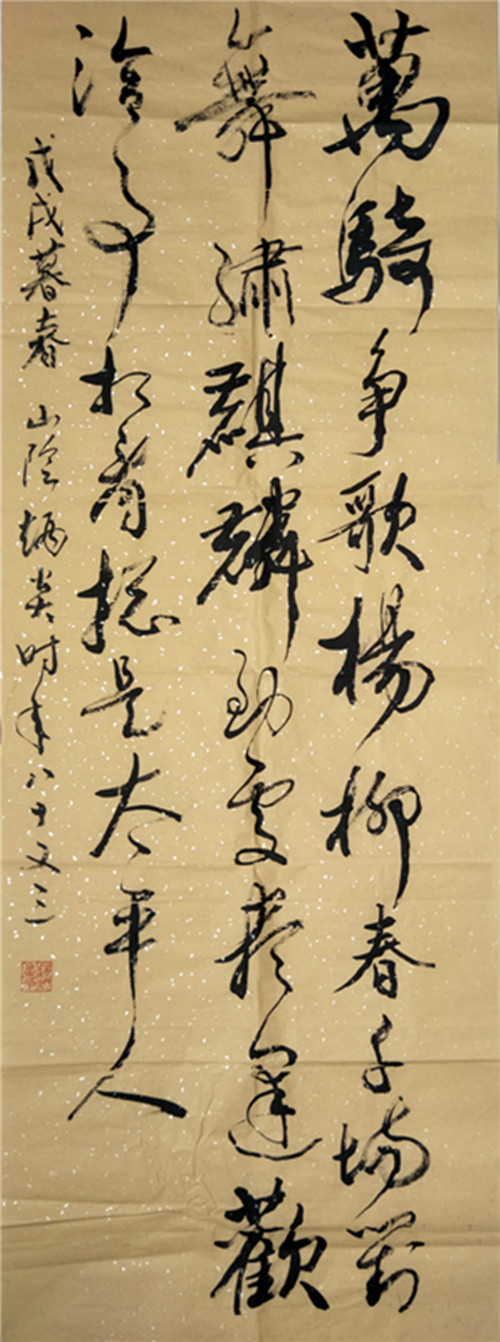 萬騎争歌楊柳春千場對
舞繡麒麟到處盡逢歡
洽事相看揔是太平人
戊戌暮春 山陰炳炎时年八十又三